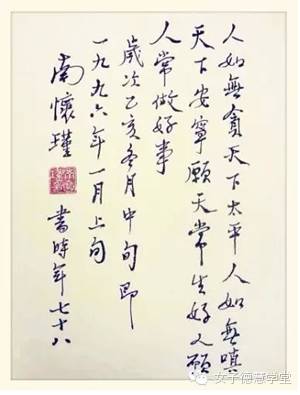 人如無貪天下太平人如無嗔
天下安寧願天常生好人願
人常做好事
歲次乙亥冬月中旬即
一九九六年一月上旬
南懷瑾 書時年七十八
女子德慧学堂